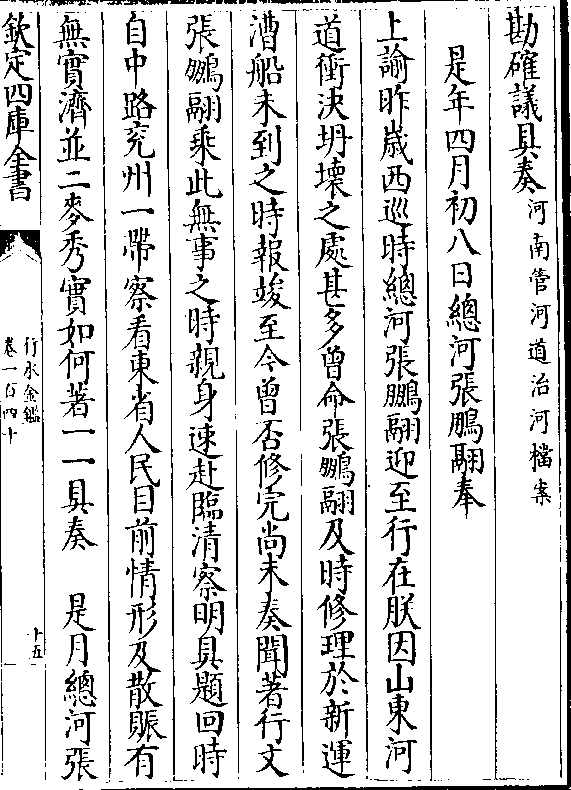 勘確議具奏河南管河道治河檔案
是年四月初八日總河張鵬翮奉
上諭昨歲西巡時總河張鵬翮迎至行在朕因山東河
道衝決坍壞之處甚多曾命張鵬翮及時修理於新運
漕船未到之時報竣至今曾否修完尚未奏聞著行文
張鵬翮乘此無事之時親身速赴臨清察明具題回時
自中路兖州一帶察看東省人民目前情形及散賑有
無實濟並二麥秀實如何著一一具奏 是月總河張
欽定四庫全書
行水金鑑
卷一百四十
十五